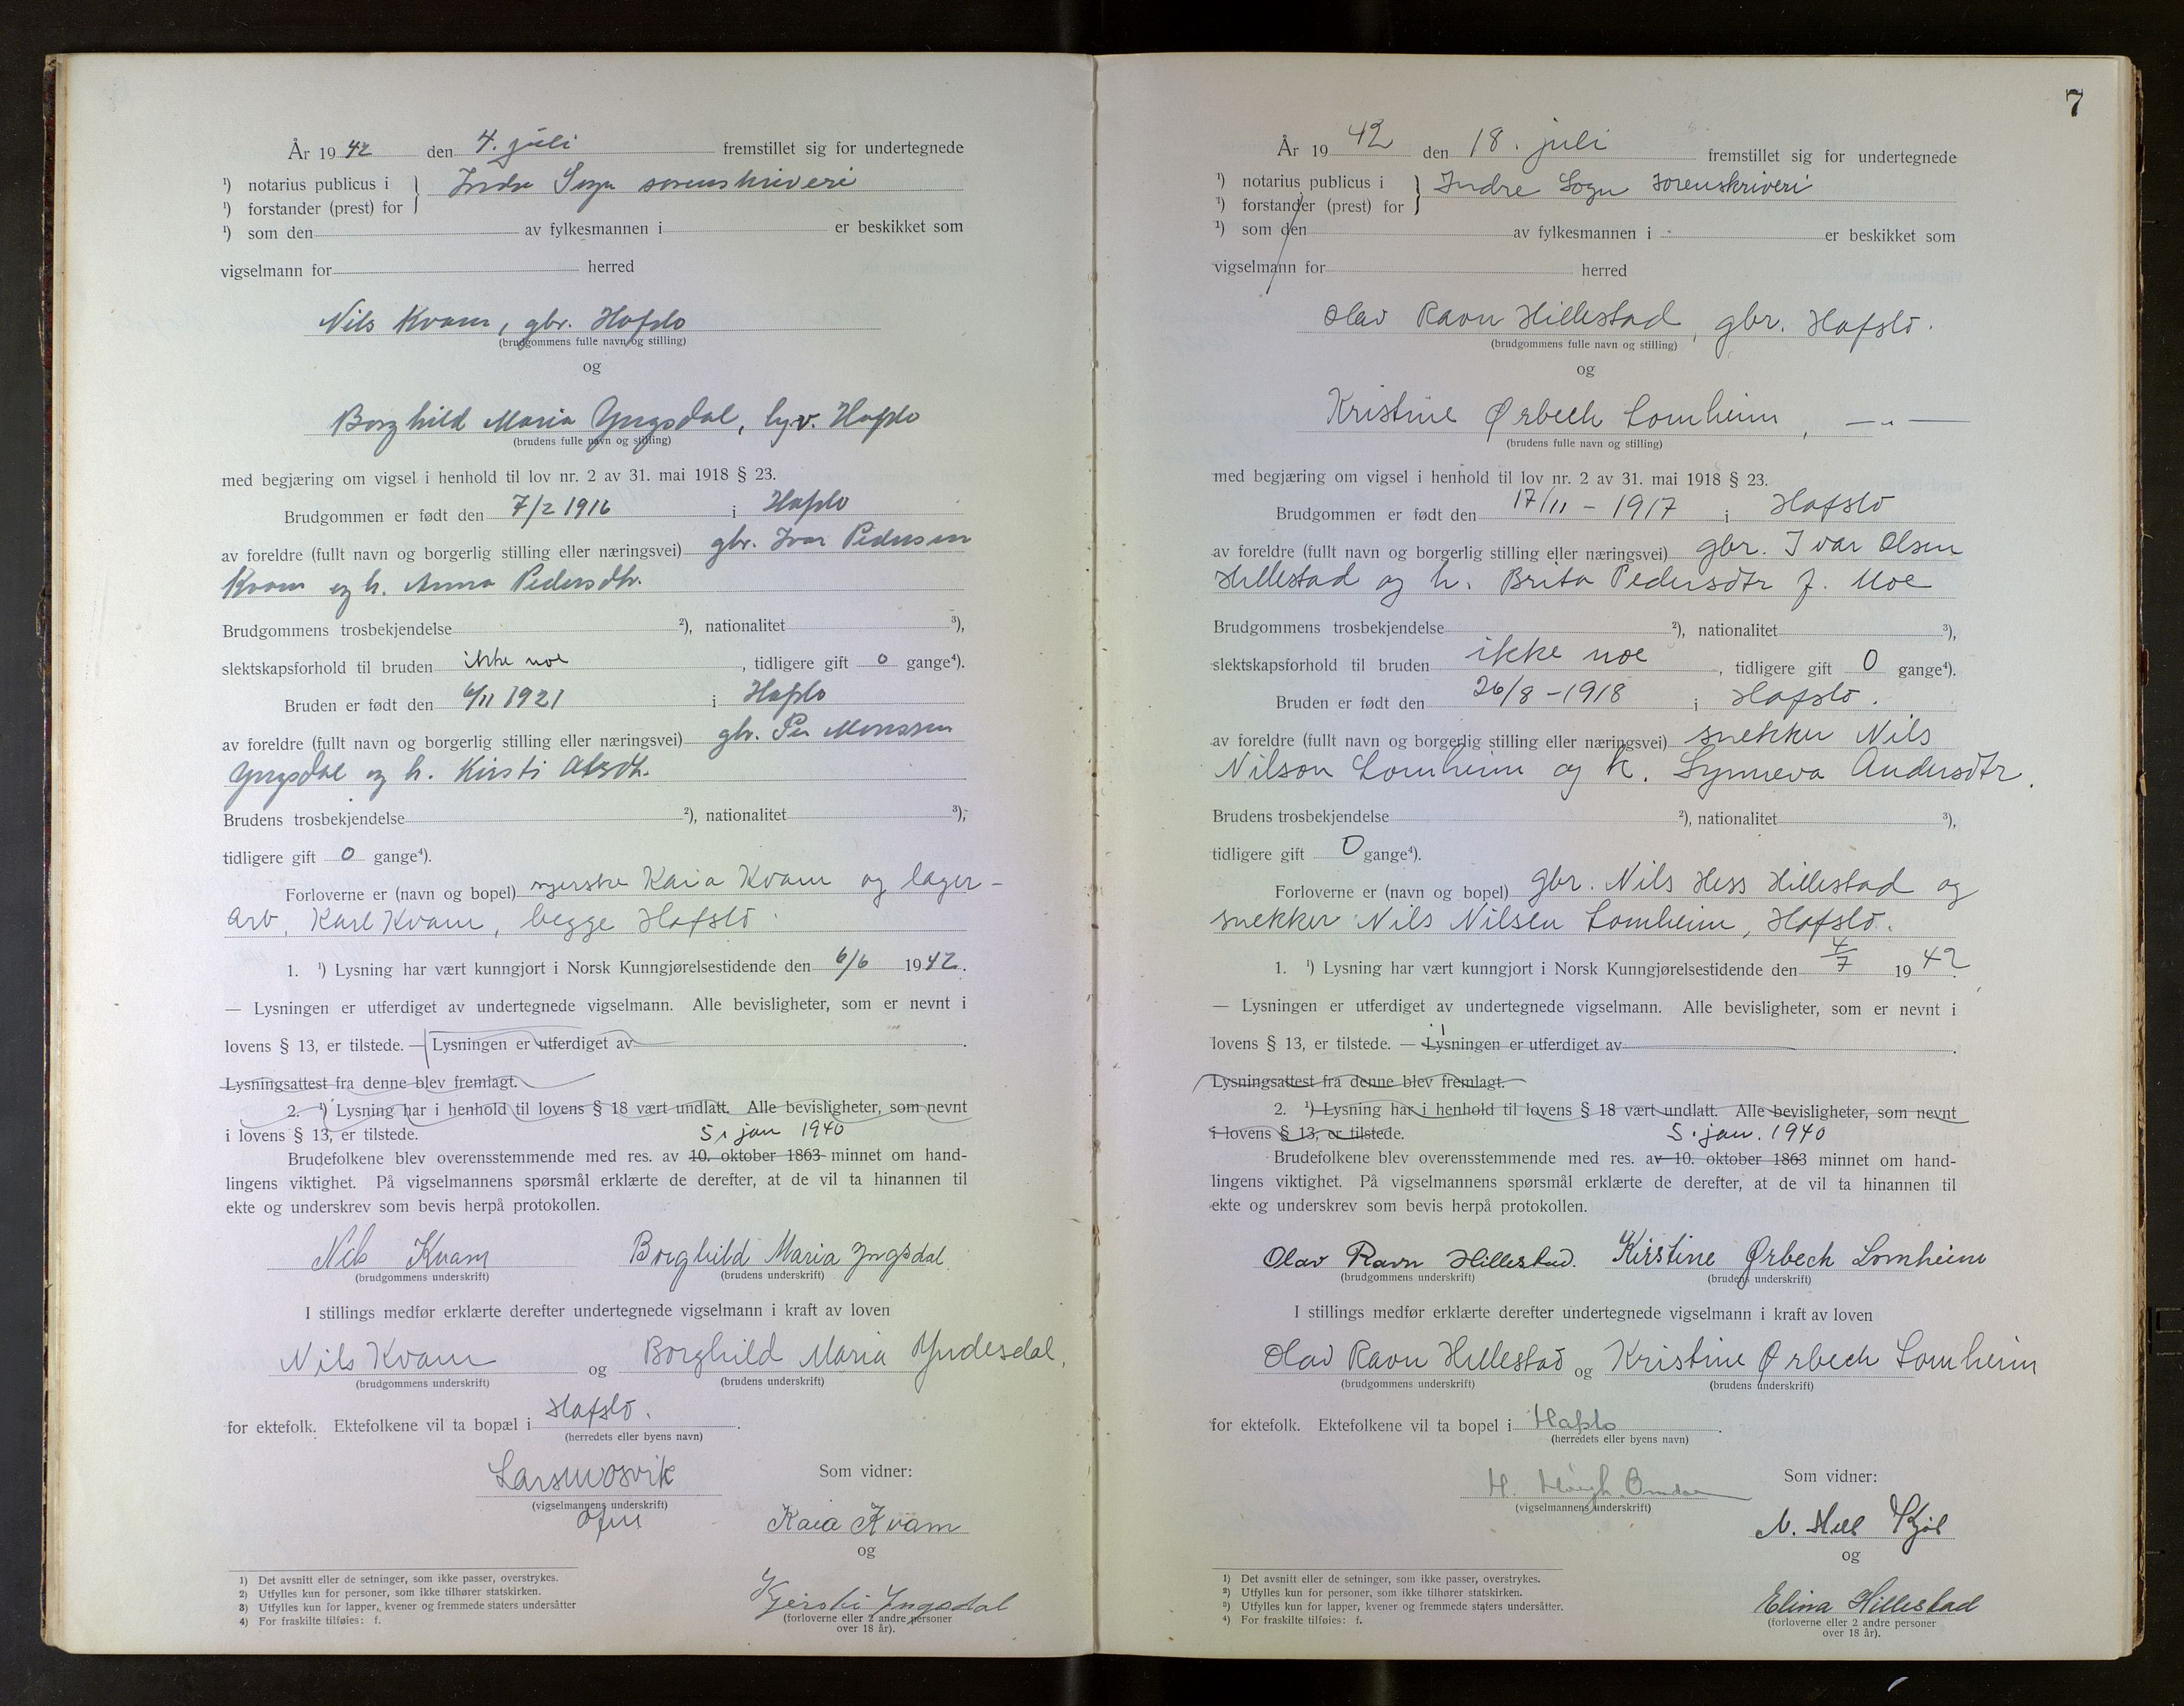 År 1942 den 4. juli fremstillet sig for undertegnede
¹) notarius publicus i } Indre Sogn sorenskriveri
¹) forstander (prest) for
¹) som den av fylkesmannen i er beskikket som
vigselmann for herred
Nils Kvam, gbr. Hafslo
(brudgommens fulle navn og stilling)
og
Borghild Maria Yngsdal, hv. Hafslo
(brudens fulle navn og stilling)
med begjæring om vigsel i henhold til lov nr. 2 av 31. mai 1918 § 23.
Brudgommen er født den 7/2 1916 i Hafslo
av foreldre (fullt navn og borgerlig stilling eller næringsvei) gbr. Ivar Pedersen
Kvam og h. Anna Pedersdtr.
Brudgommens trosbekjendelse ²), nationalitet ³),
slektskapsforhold til bruden ikke noe, tidligere gift 0 gange⁴).
Bruden er født den 6/11 1921 i Hafslo
av foreldre (fullt navn og borgerlig stilling eller næringsvei) gbr. Per Monssen
Yngsdal og h. Kirsti
Brudens trosbekjendelse ²), nationalitet ³),
tidligere gift 0 gange⁴).
Forloverne er (navn og bopel) syerske Kaia Kvam og lager-
arb, Karl Kvam, begge Hafslo
1. ¹) Lysning har vært kunngjort i Norsk Kunngjørelsestidende den 6/6 1942.
— Lysningen er utferdiget av undertegnede vigselmann. Alle bevisligheter, som er nevnt i
lovens § 13, er tilstede. — Lysningen er utferdiget av .
Lysningsattest fra denne blev fremlagt.
2. ¹) Lysning har i henhold til lovens § 18 vært undlatt. Alle bevisligheter, som nevnt
i lovens § 13, er tilstede. 5. jan 1940
Brudefolkene blev overensstemmende med res. av 10. oktober 1863 minnet om hand-
lingens viktighet. På vigselmannens spørsmål erklærte de derefter, at de vil ta hinannen til
ekte og underskrev som bevis herpå protokollen.
Nils Kvam Borghild Maria Yngsdal
(brudgommens underskrift) (brudens underskrift)
I stillings medfør erklærte derefter undertegnede vigselmann i kraft av loven
Nils Kvam og Borghild Maria Yndesdal,
(brudgommens underskrift) (brudens underskrift)
for ektefolk. Ektefolkene vil ta bopæl i Hafslo.
(herredets eller byens navn)
Lars Mosvik Som vidner:
(vigselmannens underskrift)
Kaia Kvam
og
Yngsdal
(forloverne eller 2 andre personer
over 18 år).
1) Det avsnitt eller de setninger, som ikke passer, overstrykes.
2) Utfylles kun for personer, som ikke tilhører statskirken.
3) Utfylles kun for lapper, kvener og fremmede staters undersåtter
4) For fraskilte tilføies: f.
7
År 1942 den 18. juli fremstillet sig for undertegnede
¹) notarius publicus i } Indre Sogn sorenskriveri
¹) forstander (prest) for
¹) som den av fylkesmannen i er beskikket som
vigselmann for herred
Olav Ravn Hillestad, gbr. Hafslo.
(brudgommens fulle navn og stilling)
og
Kristine Ørbech Lomheim, — " —
(brudens fulle navn og stilling)
med begjæring om vigsel i henhold til lov nr. 2 av 31. mai 1918 § 23.
Brudgommen er født den 17/11 - 1917 i Hafslo
av foreldre (fullt navn og borgerlig stilling eller næringsvei) gbr. Ivar Olsen
Hillestad og h. Brita Pedersdtr f. Moe
Brudgommens trosbekjendelse ²), nationalitet ³),
slektskapsforhold til bruden ikke noe, tidligere gift 0 gange⁴).
Bruden er født den 26/8 - 1918 i Hafslo.
av foreldre (fullt navn og borgerlig stilling eller næringsvei) snekker Nils
Nilson Lomheim og h. Synneva Andersdtr.
Brudens trosbekjendelse ²), nationalitet ³),
tidligere gift 0 gange⁴).
Forloverne er (navn og bopel) gbr. Nils Hess Hillestad og
snekker Nils Nilsen Lomheim, Hafslo.
1. ¹) Lysning har vært kunngjort i Norsk Kunngjørelsestidende den 4/7 1942.
— Lysningen er utferdiget av undertegnede vigselmann. Alle bevisligheter, som er nevnt i
lovens § 13, er tilstede. — Lysningen er utferdiget av .
Lysningsattest fra denne blev fremlagt.
2. ¹) Lysning har i henhold til lovens § 18 vært undlatt. Alle bevisligheter, som nevnt
i lovens § 13, er tilstede. 5. jan. 1940
Brudefolkene blev overensstemmende med res. av 10. oktober 1863 minnet om hand-
lingens viktighet. På vigselmannens spørsmål erklærte de derefter, at de vil ta hinannen til
ekte og underskrev som bevis herpå protokollen.
Olav Ravn Hillestad. Kirstine Ørbeck Lomheim
(brudgommens underskrift) (brudens underskrift)
I stillings medfør erklærte derefter undertegnede vigselmann i kraft av loven
Olav Ravn Hillestad og Kristine Ørbech Lomheim
(brudgommens underskrift) (brudens underskrift)
for ektefolk. Ektefolkene vil ta bopel i Hafslo.
(herredets eller byens navn)
H. Som vidner:
(vigselmannens underskrift)
N.
og
Elina Hillestad
(forloverne eller 2 andre personer
over 18 år).
1) Det avsnitt eller de setninger, som ikke passer, overstrykes.
2) Utfylles kun for personer, som ikke tilhører statskirken.
3) Utfylles kun for lapper, kvener og fremmede staters undersåtter.
4) For fraskilte tilføies: f.